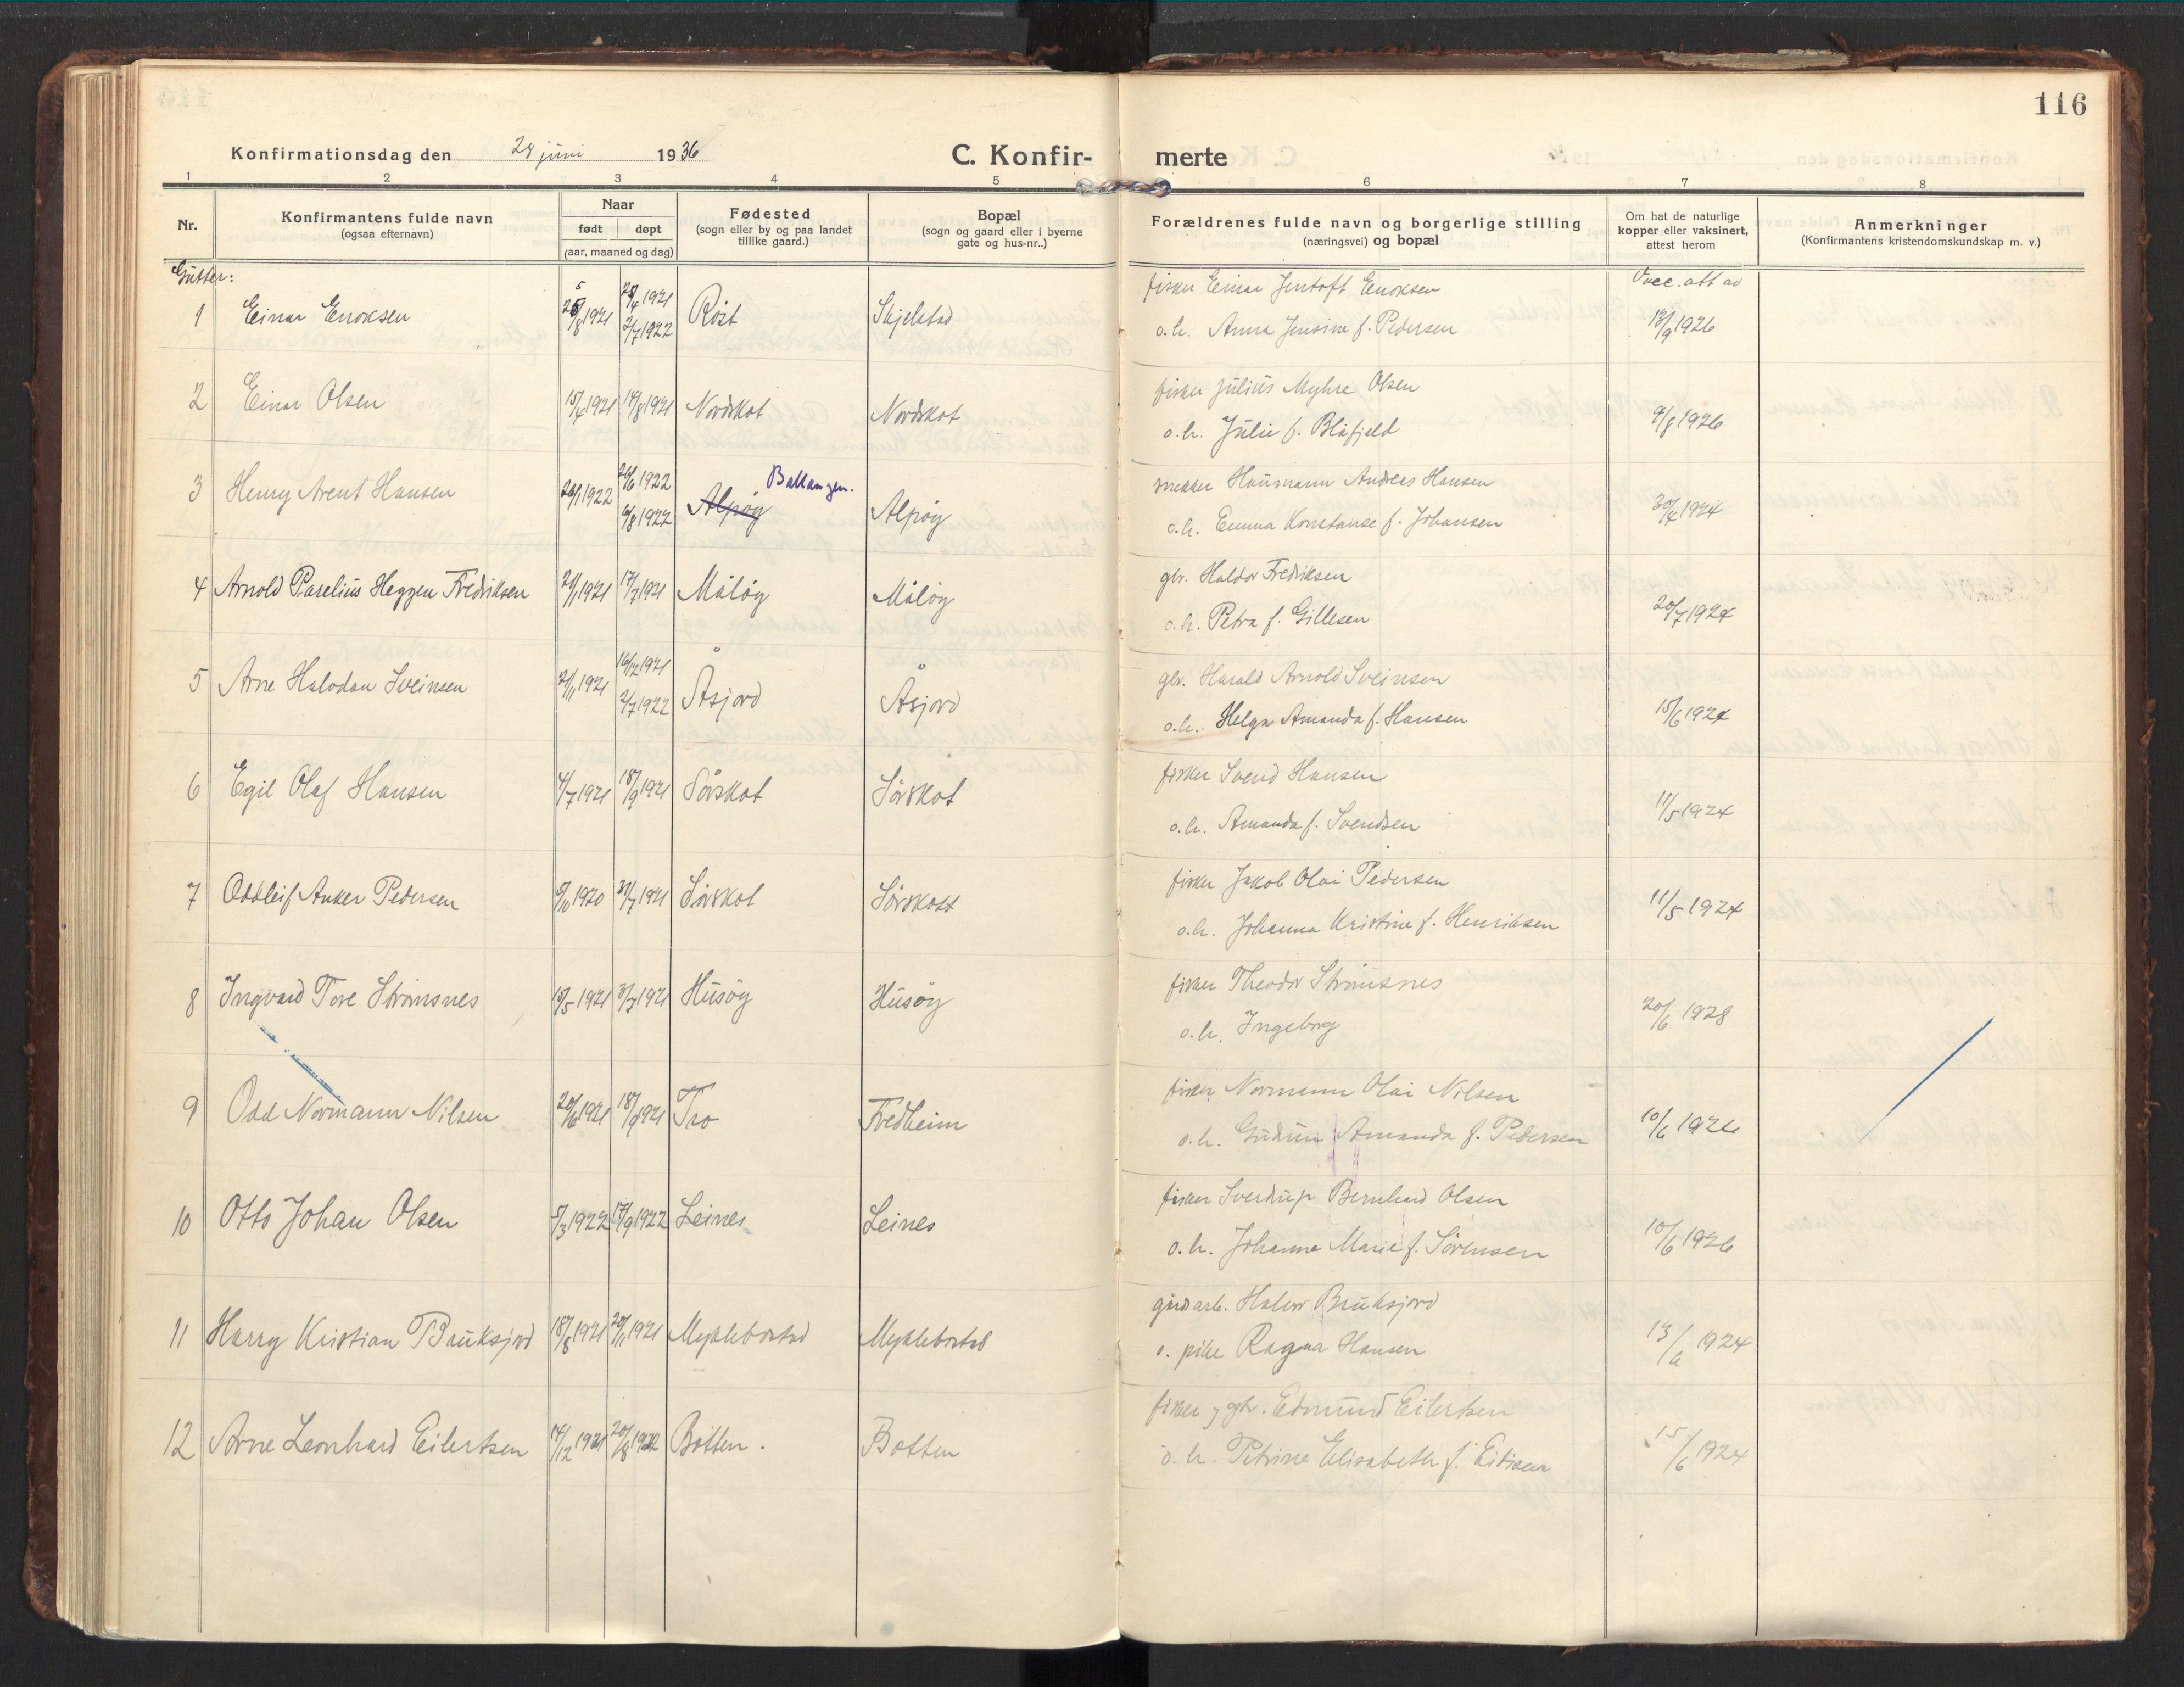 116
Konfirmationsdag den 28 juni 1936
C. Konfir- merte
1 2 3 4 5 6 7 8
Nr.
Konfirmantens fulde navn
(ogsaa efternavn)
Naar
født døpt
(aar, maaned og dag)
Fødested
(sogn eller by og paa landet
tillike gaard.)
Bopæl
(sogn og gaard eller i byerne
gate og hus-nr..)
Forældrenes fulde navn og borgerlige stilling
(næringsvei) og bopæl
Om hat de naturlige
kopper eller vaksinert,
attest herom
Anmerkninger
(Konfirmantens kristendomskundskap m. v.)
Gutter:
1 Einar Enoksen /8 1921 1921 2/7 1922 Röst Skjelstad
fisker Einar Jentoft Enoksen
o.h. Anna Jensine f. Pedersen
Vacc. att av
13/9 1926
2 Einar Olsen 15/4 1921 14/8 1921 Nordskot Nordskot
fisker Julius Myhre Olsen
o.h. Julie f. Blåfjeld
9/8 1926
3 Henry Arent Hansen 20/1 1922 26/6 1922 6/8 1922 Alpöy Ballangen. Alpöy
snekker Hausmann Andreas Hansen
o.h. Emma Konstanse f. Johansen
30/4 1924
4 Arnold Parelius Heggen Fredriksen 21/1 1921 17/7 1921 Målöy Målöy
gbr. Haldor Fredriksen
o.h. Petra f. Gillesen
20/7 1924
5 Arne Halvdan Sveinsen 21/11 1921 16/12 1921 2/7 1922 Åsjord Åsjord
gbr. Harald Arnold Sveinsen
o.h. Helga Amanda f. Hansen
15/6 1924
6 Egil Olaf Hansen 4/7 1921 18/9 1921 Sörskot Sörskot
fisker Svend Hansen
o.h. Amanda f. Svendsen
11/5 1924
7 Oddleif Anker Pedersen 5/10 1920 31/7 1921 Sörskot Sörskott
fisker Jakob Olai Pedersen
o.h. Johanna Kristine f. Henriksen
11/5 1924
8 Ingvard Tore Strömsnes 15/5 1921 31/7 1921 Husöy Husöy
fisker Theodor Strömsnes
o.h. Ingeborg
20/6 1928
9 Odd Normann Nilsen 20/6 1921 18/9 1921 Tro Fredheim
fisker Normann Olai Nilsen
o.h. Gudrun Amanda f. Pedersen
10/6 1926
10 Otto Johan Olsen 5/3 1922 17/9 1922 Leines Leines
fisker Sverdrup Bernhard Olsen
o.h. Johanna Marie f. Sörensen
10/6 1926
11 Harry Kristian Bruksjord 18/8 1921 20/11 1921 Myklebostad Myklebostad
gårdarb. Halvor Bruksjord
o. pike Ragna Hansen
13/6 1924
12 Arne Leonhard Eilertsen 14/12 1921 20/8 1922 Botten. Botten
fisker og gbr. Edmund Eilertsen
o.h. Petrine Elisabeth f. Eidissen
15/6 1924